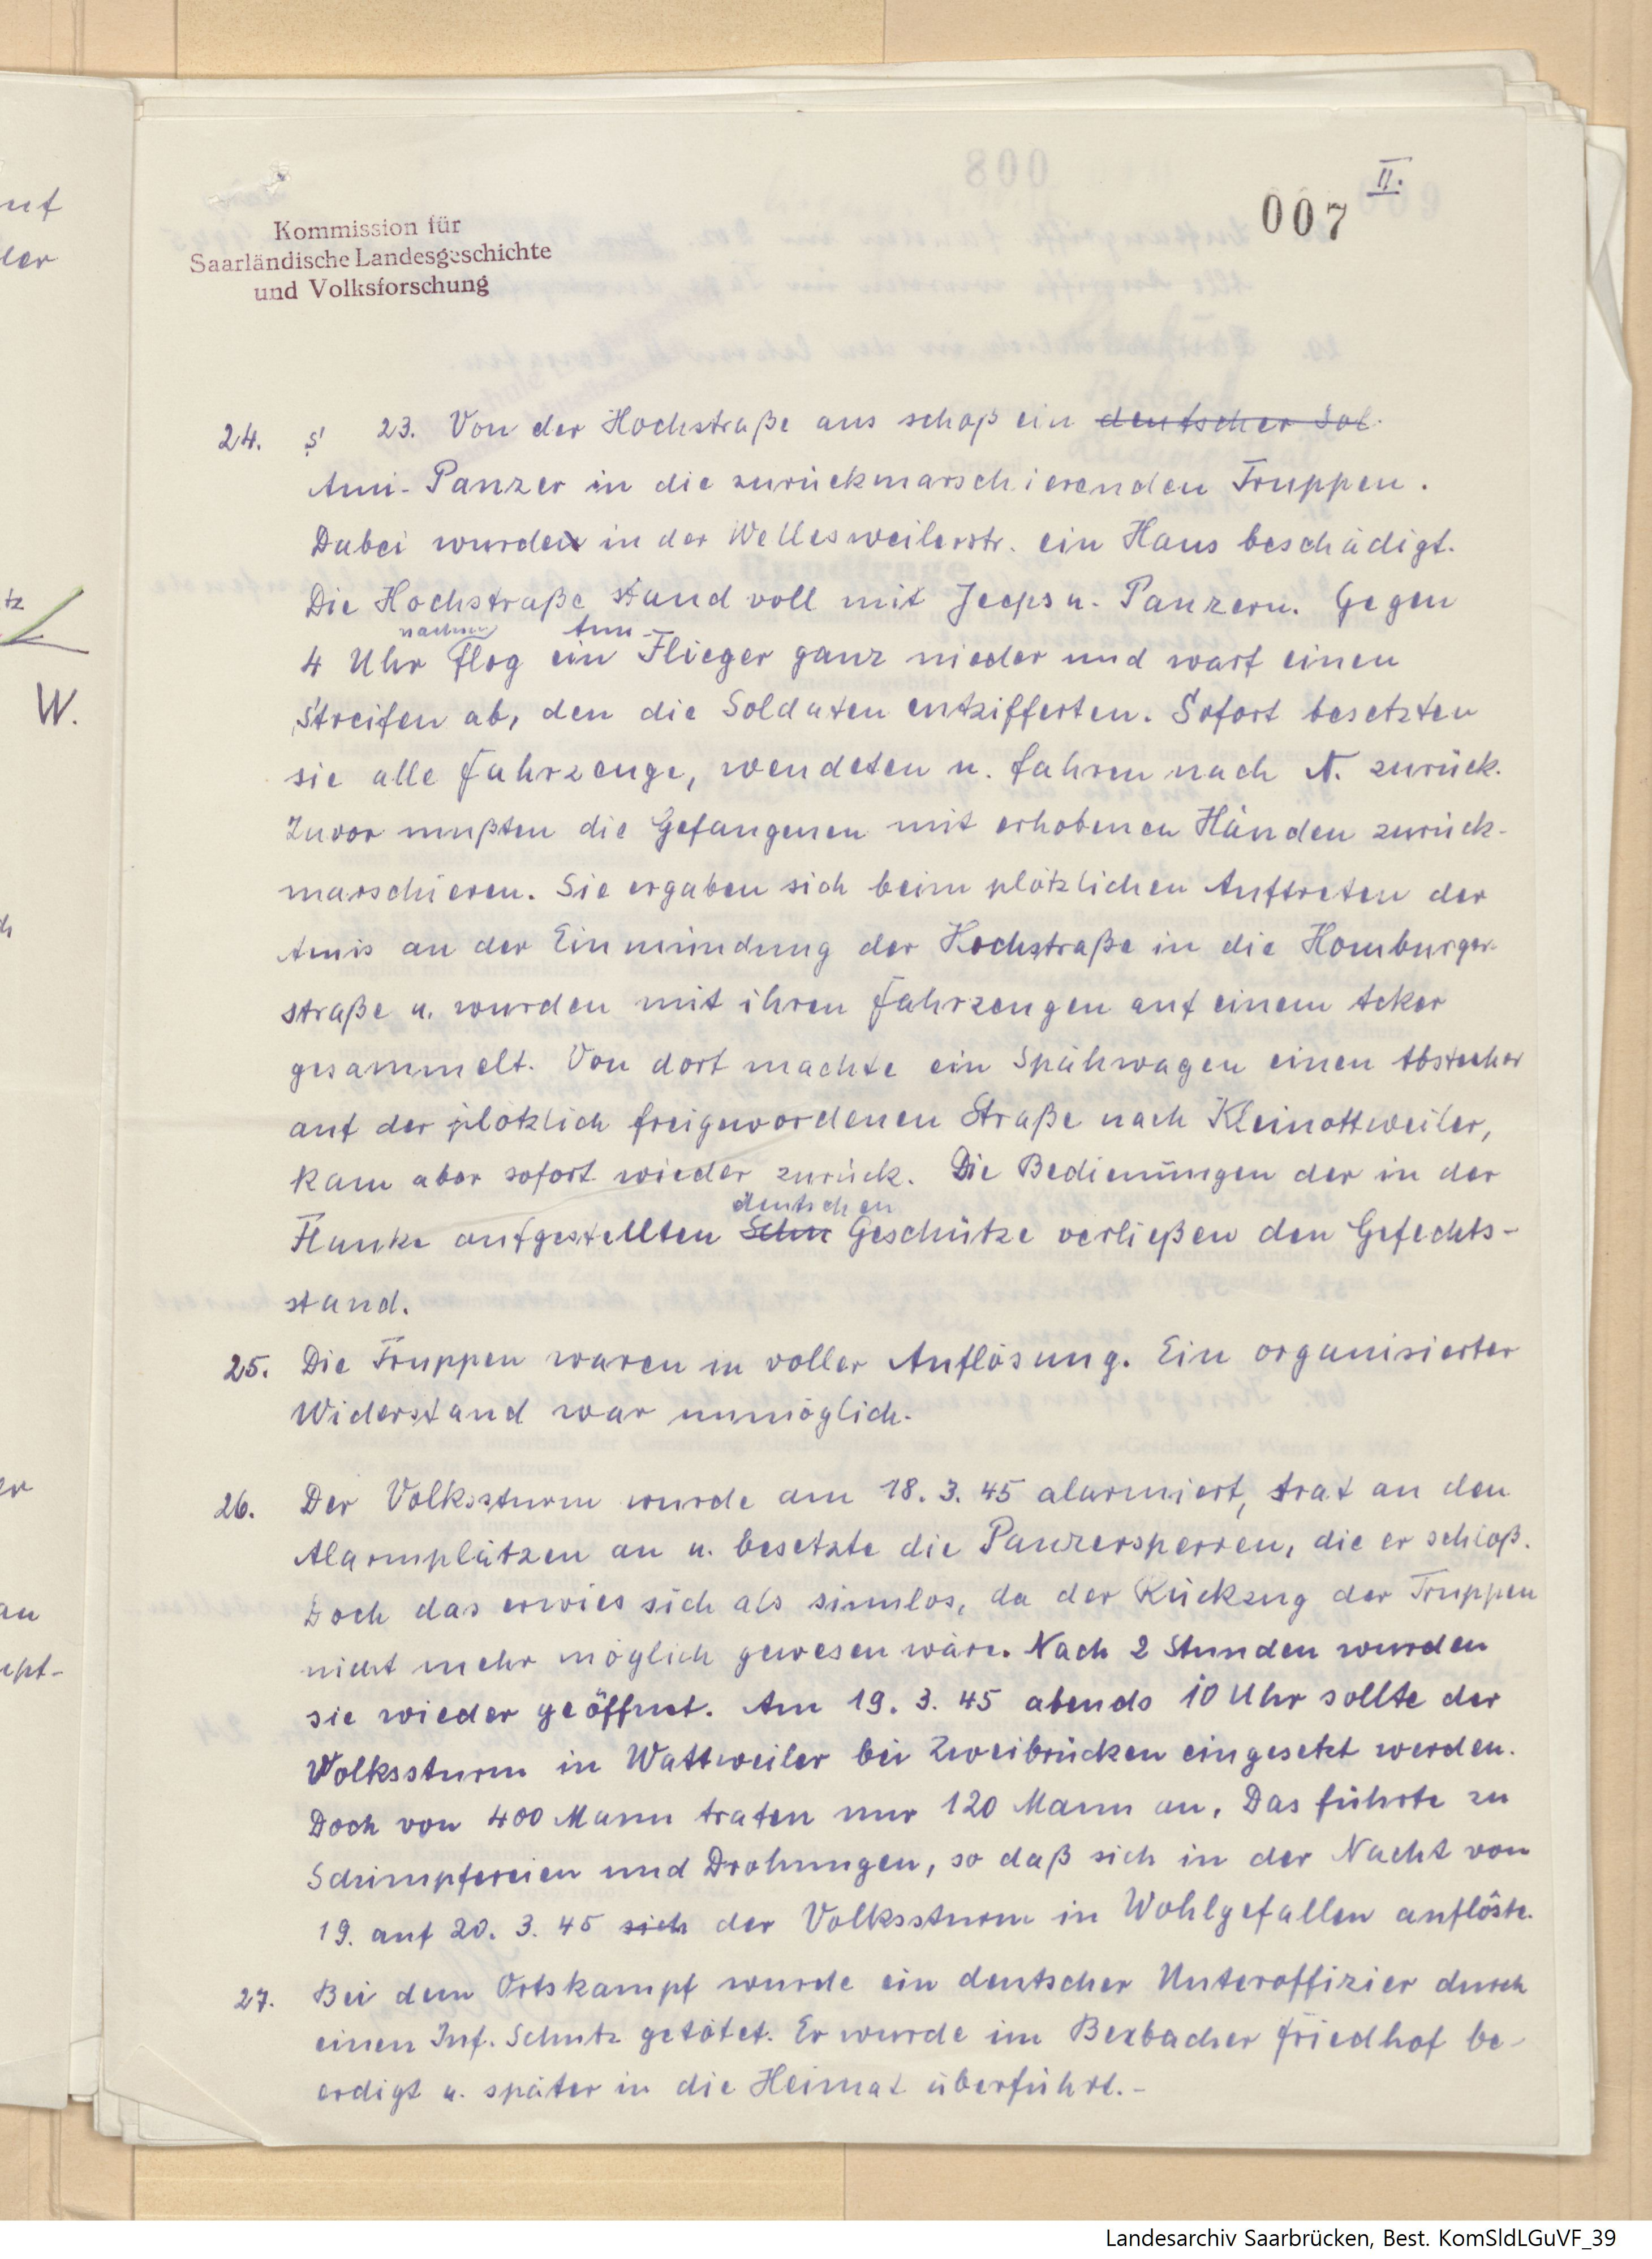 II.
007
Kommission für
Saarländische Landesgeschichte
und Volksforschung
24. s' 23. Von der Hochstraße aus schoß ein deutscher Sol.
Ami-Panzer in die zurückmarschierenden Truppen.
Dabei wurden in der Wellesweilerstr. ein Haus beschädigt.
Die Hochstraße stand voll mit Jeeps u. Panzern. Gegen
nachm Ami-
4 Uhr flog ein Flieger ganz nieder und warf einen
Streifen ab, den die Soldaten entzifferten. Sofort besetzten
sie alle Fahrzeuge, wendeten u. fahren nach A. zurück.
Zuvor mußten die Gefangenen mit erhobenen Händen zurück-
marschieren. Sie ergaben sich beim plötzlichen Auftreten der
Amis an der Einmündung der Hochstraße in die Homburger-
straße u. wurden mit ihren Fahrzeugen auf einem Acker
gesammelt. Von dort machte ein Spähwagen einen Abstecher
auf der plötzlich freigewordenen Straße nach Kleinottweiler,
kam aber sofort wieder zurück. Die Bedienungen der in der
deutschen
Flanke aufgestellten Geschütze verließen den Gefechts-
stand.
25. Die Truppen waren in voller Auflösung. Ein organisierter
Widerstand war unmöglich.
26. Der Volkssturm wurde am 18. 3. 45 alarmiert, trat an den
Alarmplätzen an u. besetzte die Panzersperren, die er schloß.
Doch das erwies sich als sinnlos, da der Rückzug der Truppen
nicht mehr möglich gewesen wäre. Nach 2 Stunden wurden
sie wieder geöffnet. Am 19. 3. 45 abends 10 Uhr sollte der
Volkssturm in Wattweiler bei Zweibrücken eingesetzt werden.
Doch von 400 Mann traten nur 120 Mann an. Das führte zu
Schimpfereien und Drohungen, so daß sich in der Nacht von
19. auf 20. 3. 45 sich der Volkssturm in Wohlgefallen auflöste.
27. Bei dem Ortskampf wurde ein deutscher Unteroffizier durch
einen Inf. Schutz getötet. Er wurde im Bexbacher Friedhof be-
erdigt u. später in die Heimat überführt.-
W.
Landesarchiv Saarbrücken, Best. KomSldLGuVF_39